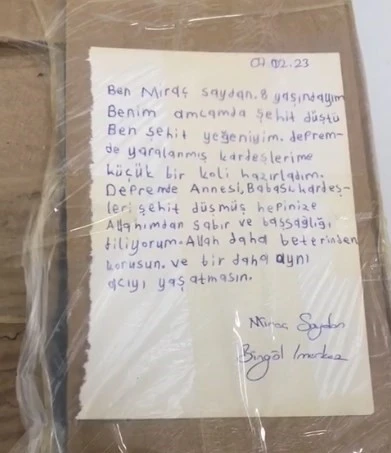 07.02.23
Ben Miraç Saydan. 8 yaşındayım
Benim amcamda şehit düştü
Ben şehit yeğeniyim. deprem-
de yaralanmış kardeşlerime
küçük bir koli hazırladım.
Depremde Annesi, Babası, kardeş-
leri şehit düşmüş hepinize
Allahımdan sabır ve başsağlığı
diliyorum. Allah daha beterinden
korusun. ve bir daha aynı
acıyı yaşatmasın.
Miraç Saydan
Bingöl / merkez